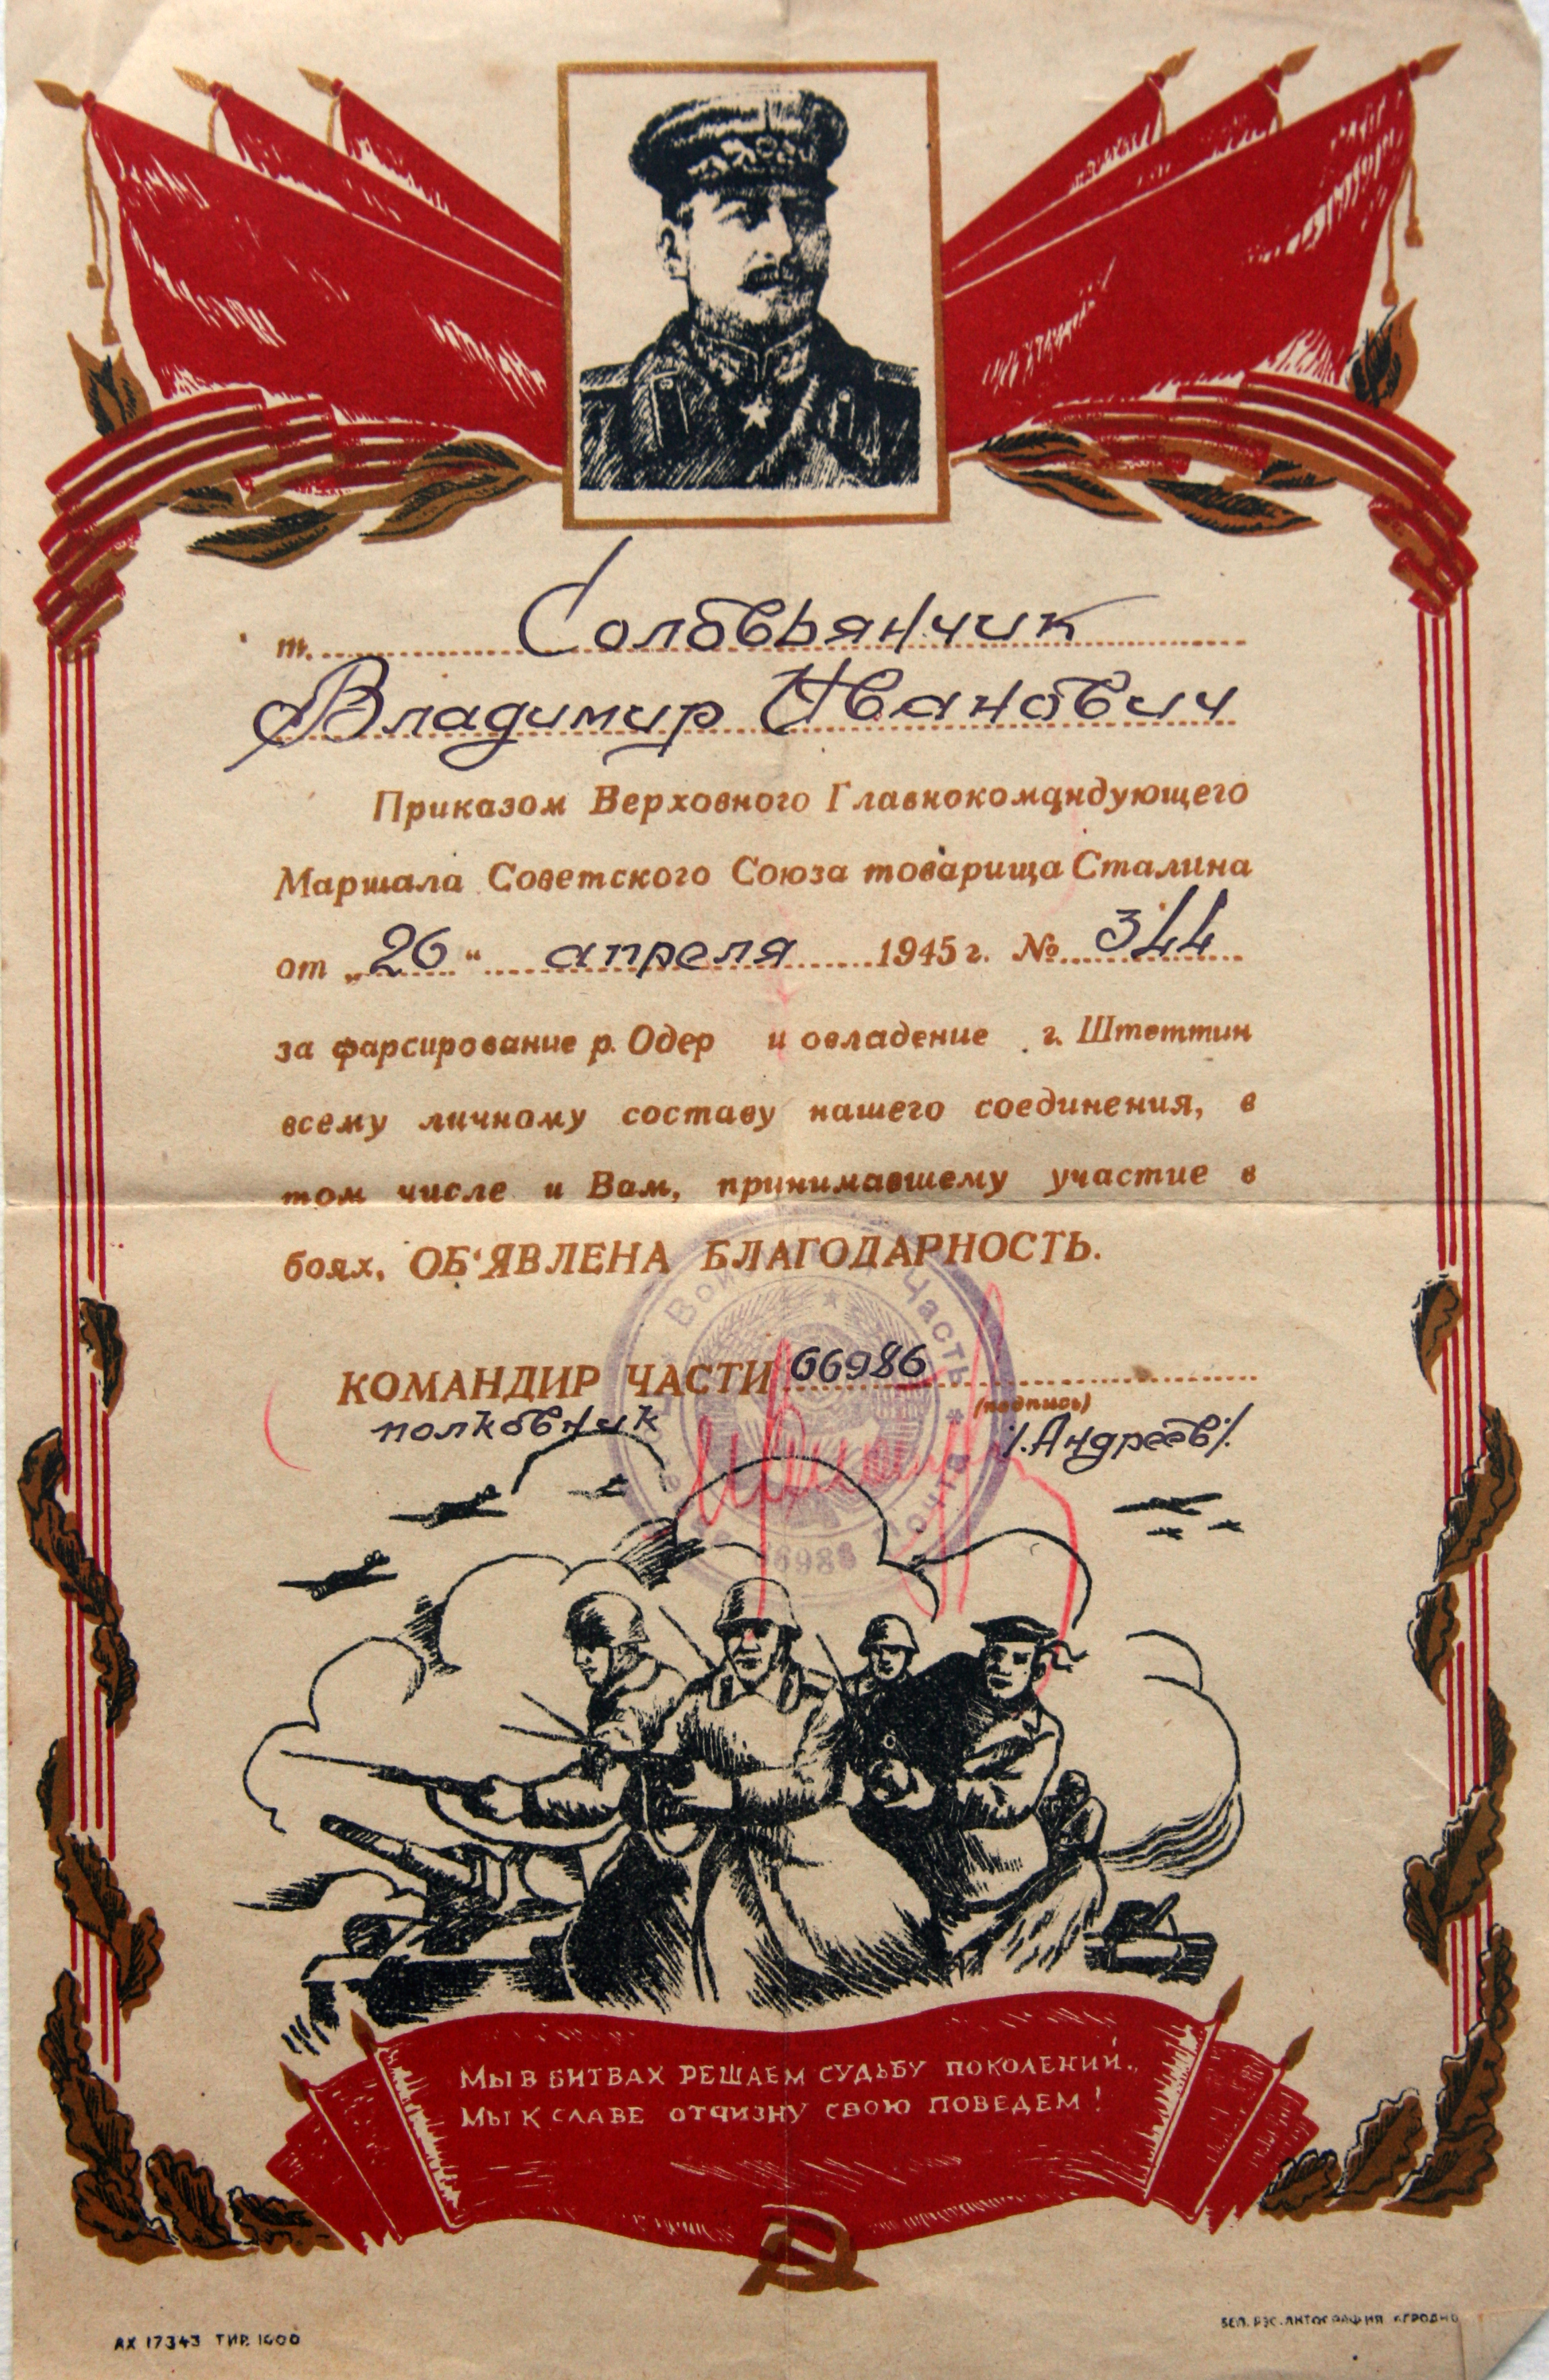 т. Соловьянчик
Владимир Иванович
Приказом Верховного Главнокомандующего
Маршала Советского Союза товарища Сталина
от „26“ апреля 1945 г. № 344
за фарсирование р. Одер и овладение г. Штеттин
всему личному составу нашего соединения, в
том числе и Вам, принимавшему участие в
боях, ОБ'ЯВЛЕНА БЛАГОДАРНОСТЬ.
КОМАНДИР ЧАСТИ 66986
(подпись)
полковник /.Андреев/.
Часть
Почта
66986
МЫ В БИТВАХ РЕШАЕМ СУДЬБУ ПОКОЛЕНИЙ.
МЫ К СЛАВЕ ОТЧИЗНУ СВОЮ ПОВЕДЕМ!
АХ 17343 ТИР. 1000
БЕЛ. РЭС. ЛИТОГРАФИЯ Г. ГРОДНО